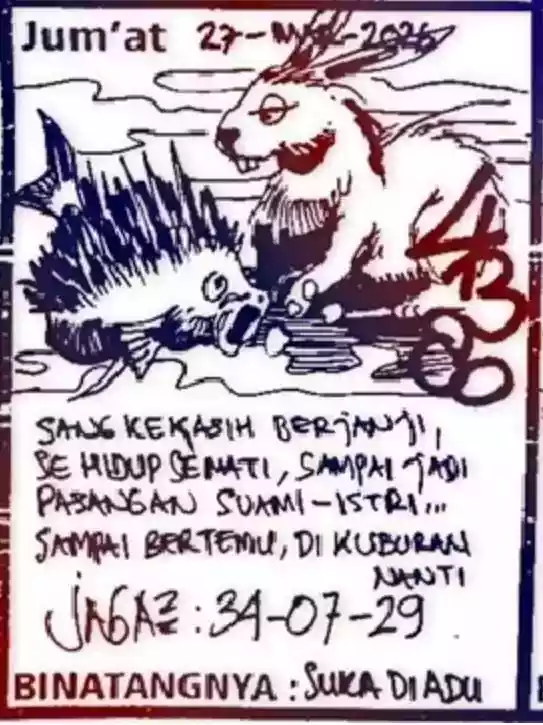 Jum'at 27-MAR-2026
43
86
SANG KEKASIH BERJANJI,
SE HIDUP SEMATI, SAMPAI JADI
PASANGAN SUAMI-ISTRI...
SAMPAI BERTEMU, DI KUBURAN
NANTI
JAGA2 : 34-07-29
BINATANGNYA : SUKA DI ADU